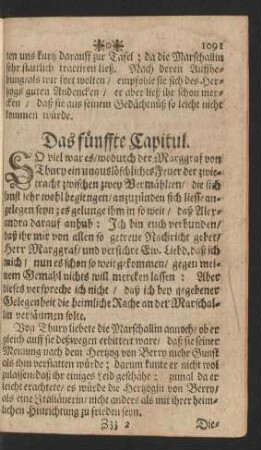 ❦o❦ 1091
ten uns kurtz darauff zur Tafel; da die Marschallin
sehr stattlich tractiren ließ. Nach deren Auffhe-
bung/als wir fort wolten / empfohle sie sich des Her-
zogs guten Andencken / er aber ließ ihr schon mer-
cken / daß sie aus seinem Gedächtnüß so leicht nicht
kommen würde.
Das fünffte Capitul.
SO viel war es/wodurch der Marggraf von
Thury ein unauslöschliches Feuer der zwie-
tracht zwischen zwey Vermählten/ die sich
sonst sehr wohl begiengen/anzuzünden sich liesse an-
gelegen seyn zes gelunge ihm in so weit / daß Alex-
andra darauf anhub: Ich bin euch verbunden/
daß ihr mir von allen so getreue Nachricht gebet/
Herr Marggraf/ und versichre Ew. Liebd. daß sich
mich / nun es schon so weit gekommen / gegen mei-
nem Gemahl nichts will mercken lassen: Aber
dieses verspreche ich nicht / daß ich bey gegebener
Gelegenheit die heimliche Rache an der Marschal-
lin versäumen solte.
Von Thury liebete die Marschallin annoch/ob er
gleich auff sie deßwegen erbittert ware/ daß sie seiner
Meinung nach dem Hertzog von Berry mehr Gunst
als ihm verstatten würde; darum kunte er nicht wol
zulassen/daß ihr einiges Leid geschähe: zumal da er
leicht erachtete/ es würde die Hertzogin von Berry/
als eine Italiänerin/ nicht anders als mit ihrer heim-
lichen Hinrichtung zu frieden seyn.
Zzz 2 Die-